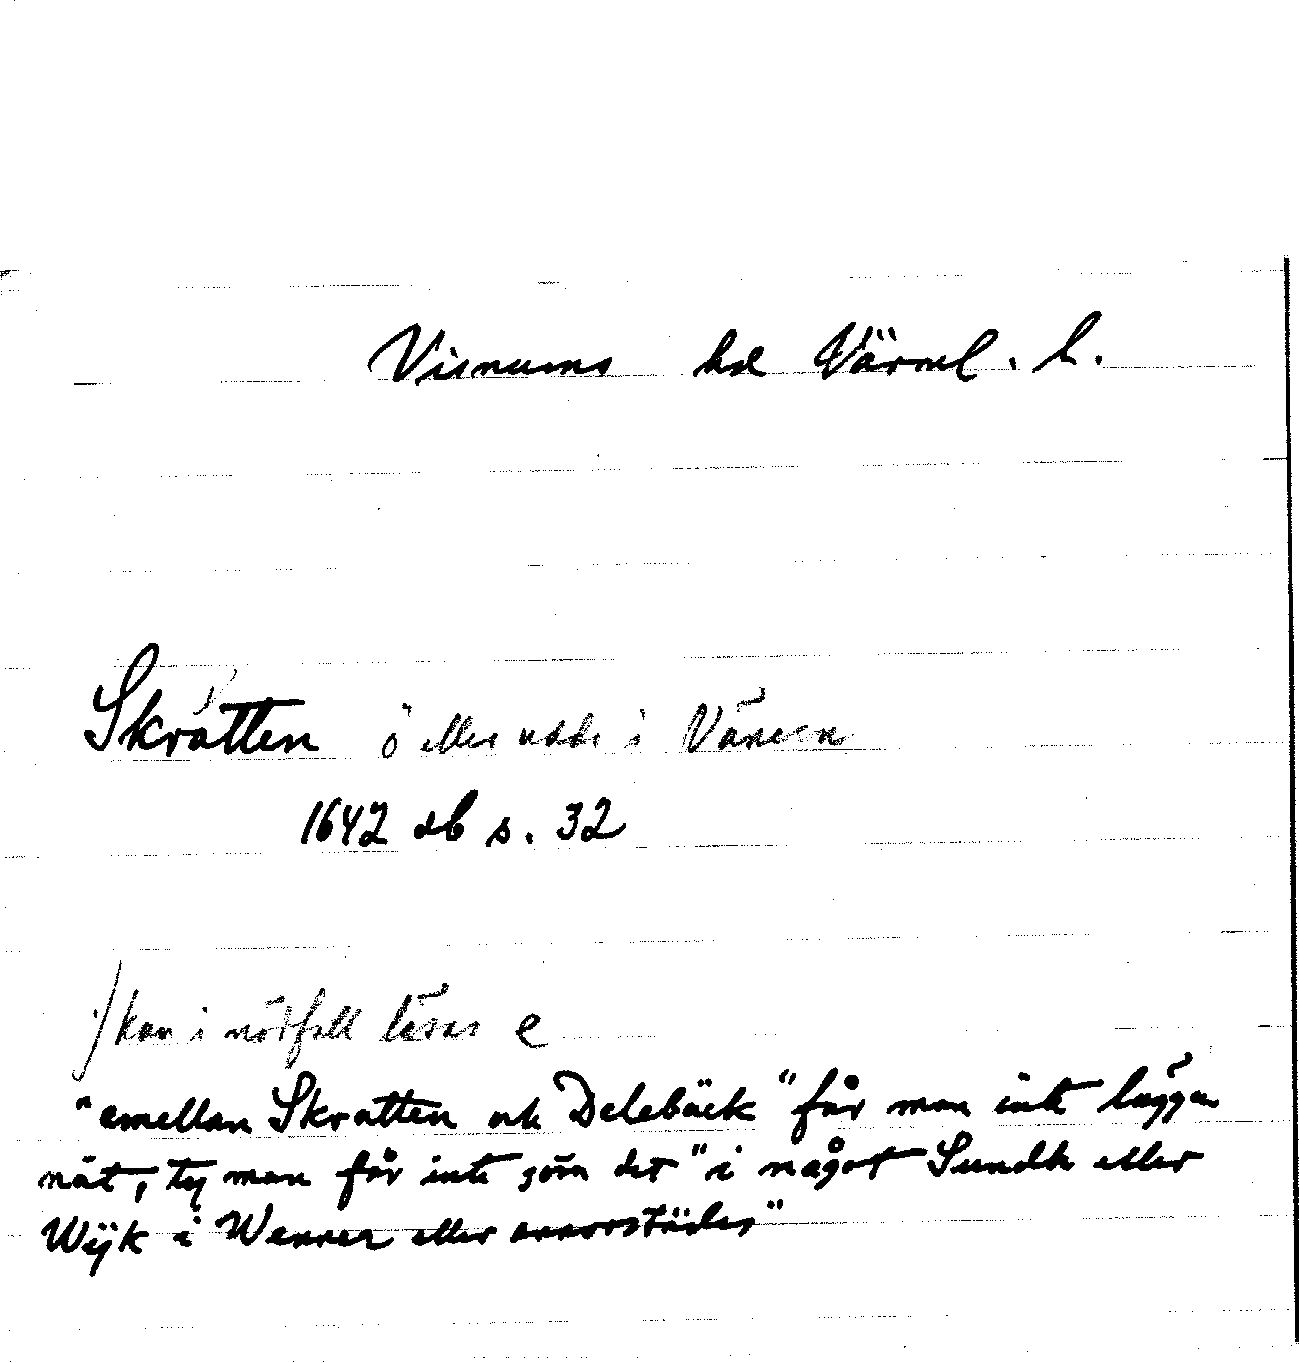 Visnums hd Värml. l.
Skratten ö eller udde i Vänern
1642 db s. 32
1) kan i nödfall läsas e
"emellan Skratten och Delebäck" får man inte lägga
nät, ty man får inte göra det "i något Sundh eller
Wijk i Wenner eller annorstädes"